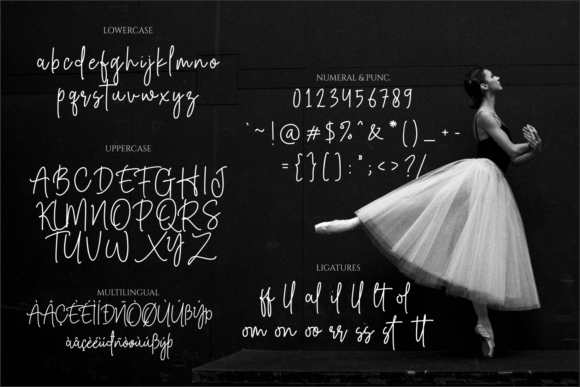 LOWERCASE
abcdefghijklmno
pqrstuvwxyz
UPPERCASE
ABCDEFGHIJ
KLMNOPQRS
TUVWXYZ
MULTILINGUAL
ÀÂÇÈÉÌÍÐÑÒØÙÚÜβÝÞ
NUMERAL & PUNC.
0123456789
`~!@#$%^&*()_+-
={}[]:";<>?/
LIGATURES
ff ll al il ll tt ol
om on oo rr ss st tt